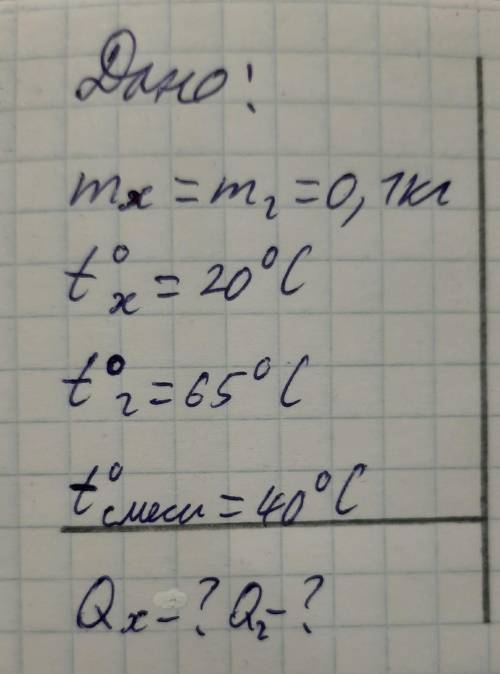 Дано:
mх = mг = 0,1кг
t°х = 20°C
t°г = 65°C
t°смеси = 40°C
Qх - ? Qг - ?